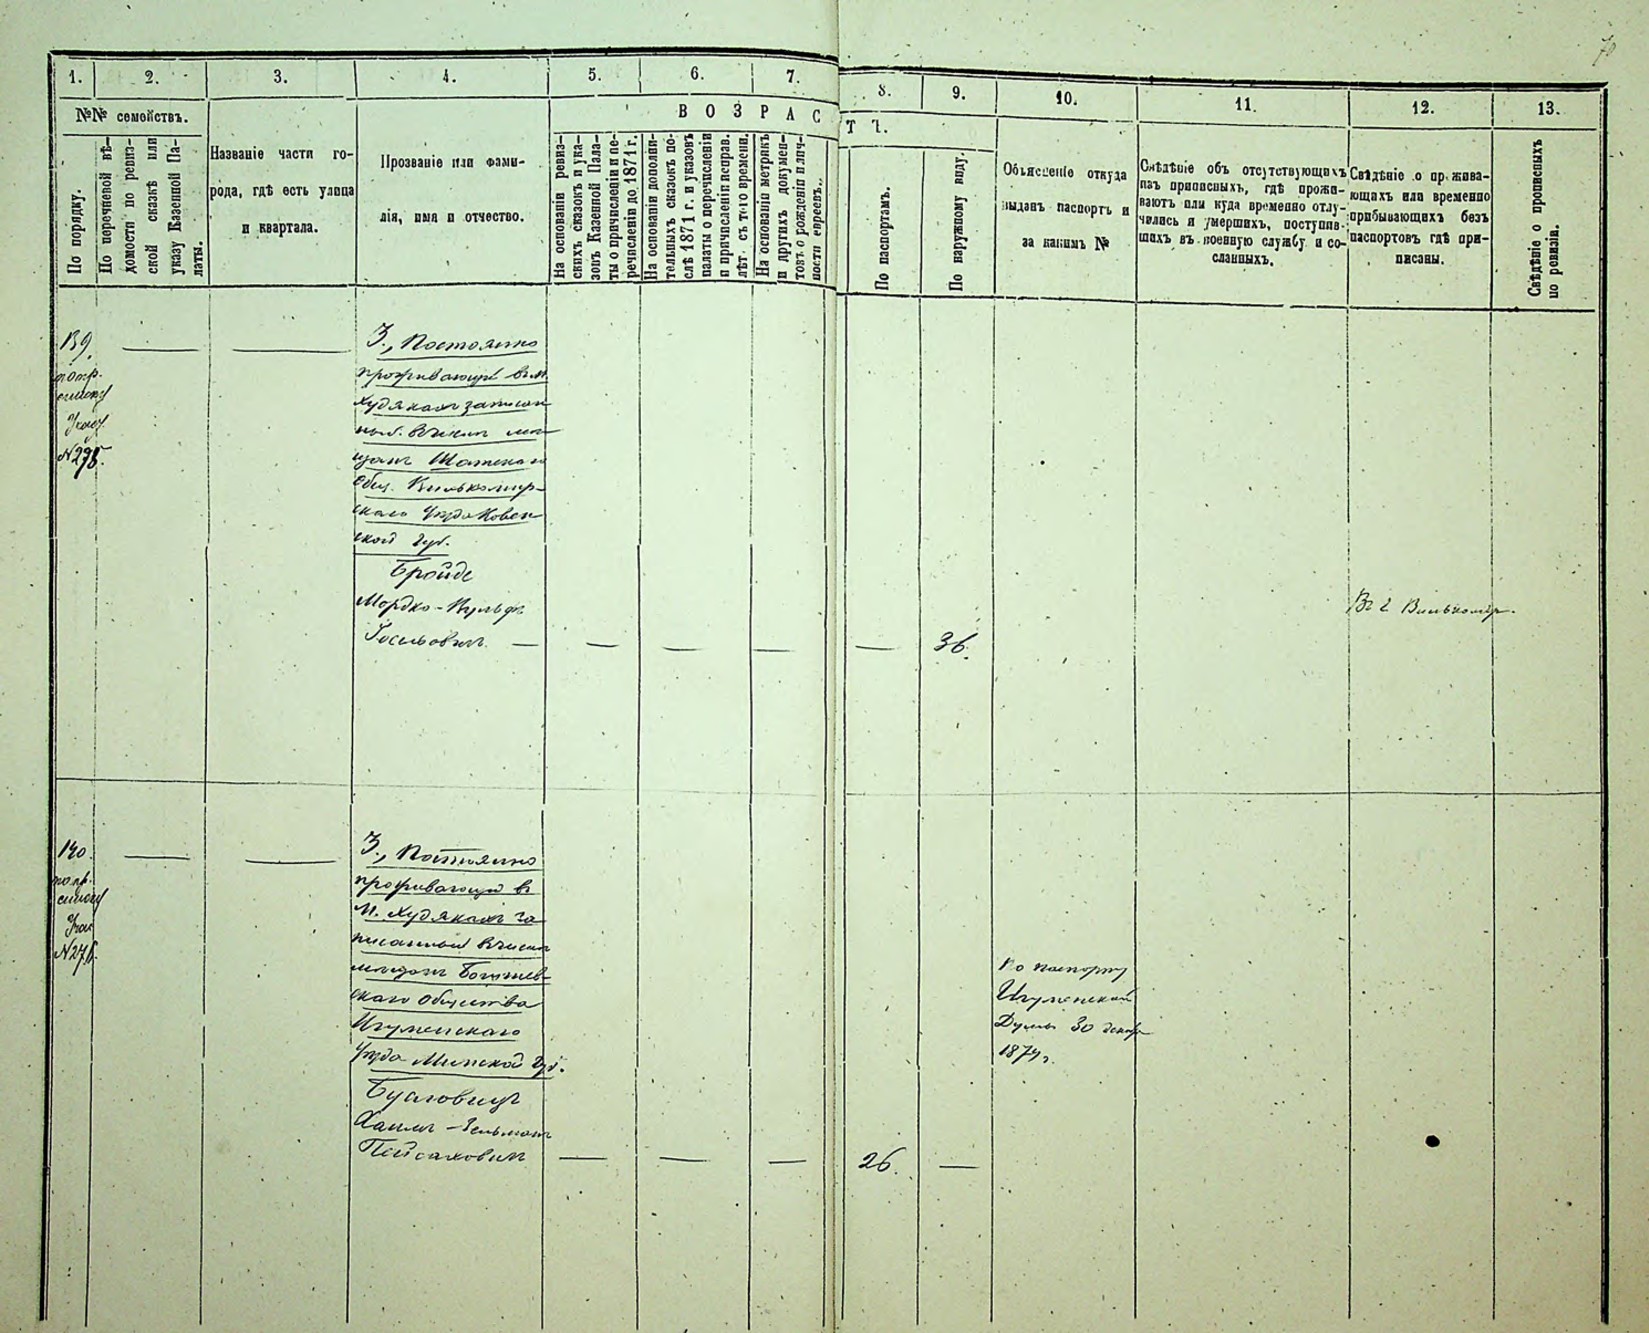 1.
2.
3.
4.
5.
6.
7.
8.
9.
10.
11.
12.
13.
№№ семействъ.
По порядку.
По перечневой вѣ-
домости по ревиз-
ской сказкѣ или
указу Казенной Па-
латы.
Названіе части го-
рода, гдѣ есть улица
и квартала.
Прозваніе или фами-
лія, имя и отчество.
ВОЗРАСТЪ.
На основаніи ревиз-
скихъ сказокъ и ука-
зовъ Казенной Пала-
ты о причисленіи и пе-
речисленіи до 1871 г.
На основаніи дополни-
тельныхъ сказокъ по-
слѣ 1871 г. и указовъ
палаты о перечисленіи
и причисленіи исправ.
лѣт. съ того времени.
На основаніи метрикъ
и другихъ докумен-
товъ о рожденіи и лич-
ности евреевъ.
По паспортамъ.
По наружному виду.
Объясненіе откуда
выданъ паспортъ и
за какимъ №
Свѣдѣніе объ отсутствующихъ
изъ приписныхъ, гдѣ прожи-
ваютъ или куда временно отлу-
чились и умершихъ, поступив-
шихъ въ военную службу и со-
сланныхъ.
Свѣдѣніе о прожива-
ющихъ или временно
прибывающихъ безъ
паспортовъ гдѣ при-
писаны.
Свѣдѣніе о прописныхъ
по ревизіи.
139.
по пр.
списку
№275.
3., Постоянно
проживающій въ м.
Худякахъ записан
ный въ числѣ мѣ
щанъ Шатскаго
Общ. Вилькомир-
скаго Уѣзда Ковен
ской Губ.
Бройде
Мордхо-Вульфъ
—
—
—
—
—
36.
Въ г. Вилькомір.
140.
по пр.
списку
№276.
3., Постоянно
проживающій въ
М. Худякахъ за
писанный въ числѣ
мѣщанъ
скаго Общества
Игуменскаго
Уѣзда Минской Губ.
Хаимъ-Зельманъ
Пейсаховичъ
—
—
—
26.
—
По паспорту
Игуменской
Думы 30 декабр
1874 г.